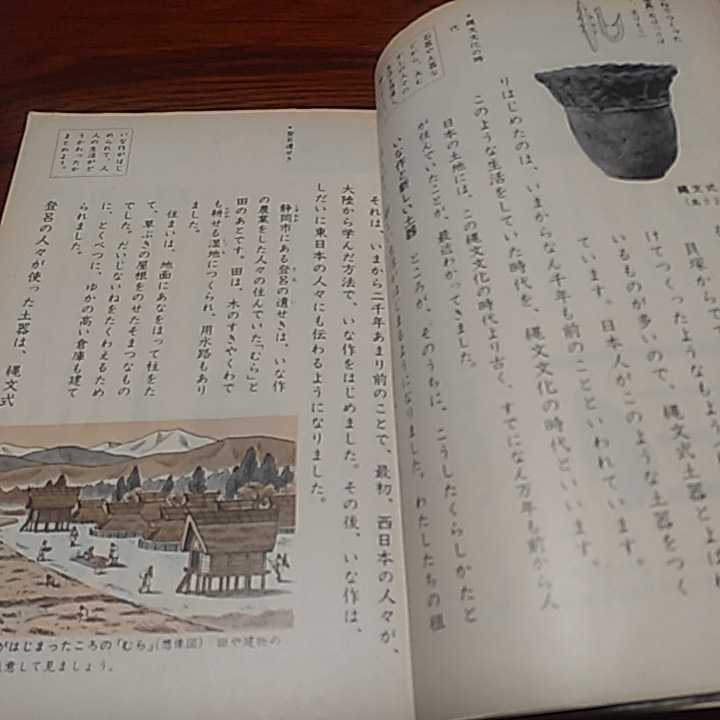 縄文式
貝塚からで
けてつくったようなもよう
いるものが多いので、縄文式土器とよば
ています。日本人がこのような土器をつく
りはじめたのは、いまからなん千年も前のことといわれています。
このような生活をしていた時代を、縄文文化の時代といいます。
日本の土地には、この縄文文化の時代より古く、すでになん万年も前から人
が住んでいたことが、最近わかってきました。
●縄文文化の時
代
いな作と新しい土器 ところが、そのうちに、こうしたくらしかたと
はじまるようになりました。わたしたちの祖
それは、いまから二千年あまり前のことで、最初、西日本の人々が、
大陸から学んだ方法で、いな作をはじめました。その後、いな作は、
しだいに東日本の人々にも伝わるようになりました。
●登呂遺せき
静岡市にある登呂の遺せきは、いな作
の農業をした人々の住んでいた「むら」と
田のあとです。田は、木のすきやくわで
も耕せる湿地につくられ、用水路もあり
ました。
住まいは、地面にあなをほって柱をた
て、草ぶきの屋根をのせたそまつなもの
でした。だいじないねをたくわえるため
に、とくべつに、ゆかの高い倉庫も建て
られました。
登呂の人々が使った土器は、縄文式
いな作がはじ
められて、人
人の生活がど
うかわったか
まとめよう。
がはじまったころの「むら」(想像図) 田や建物の
意して見ましょう。